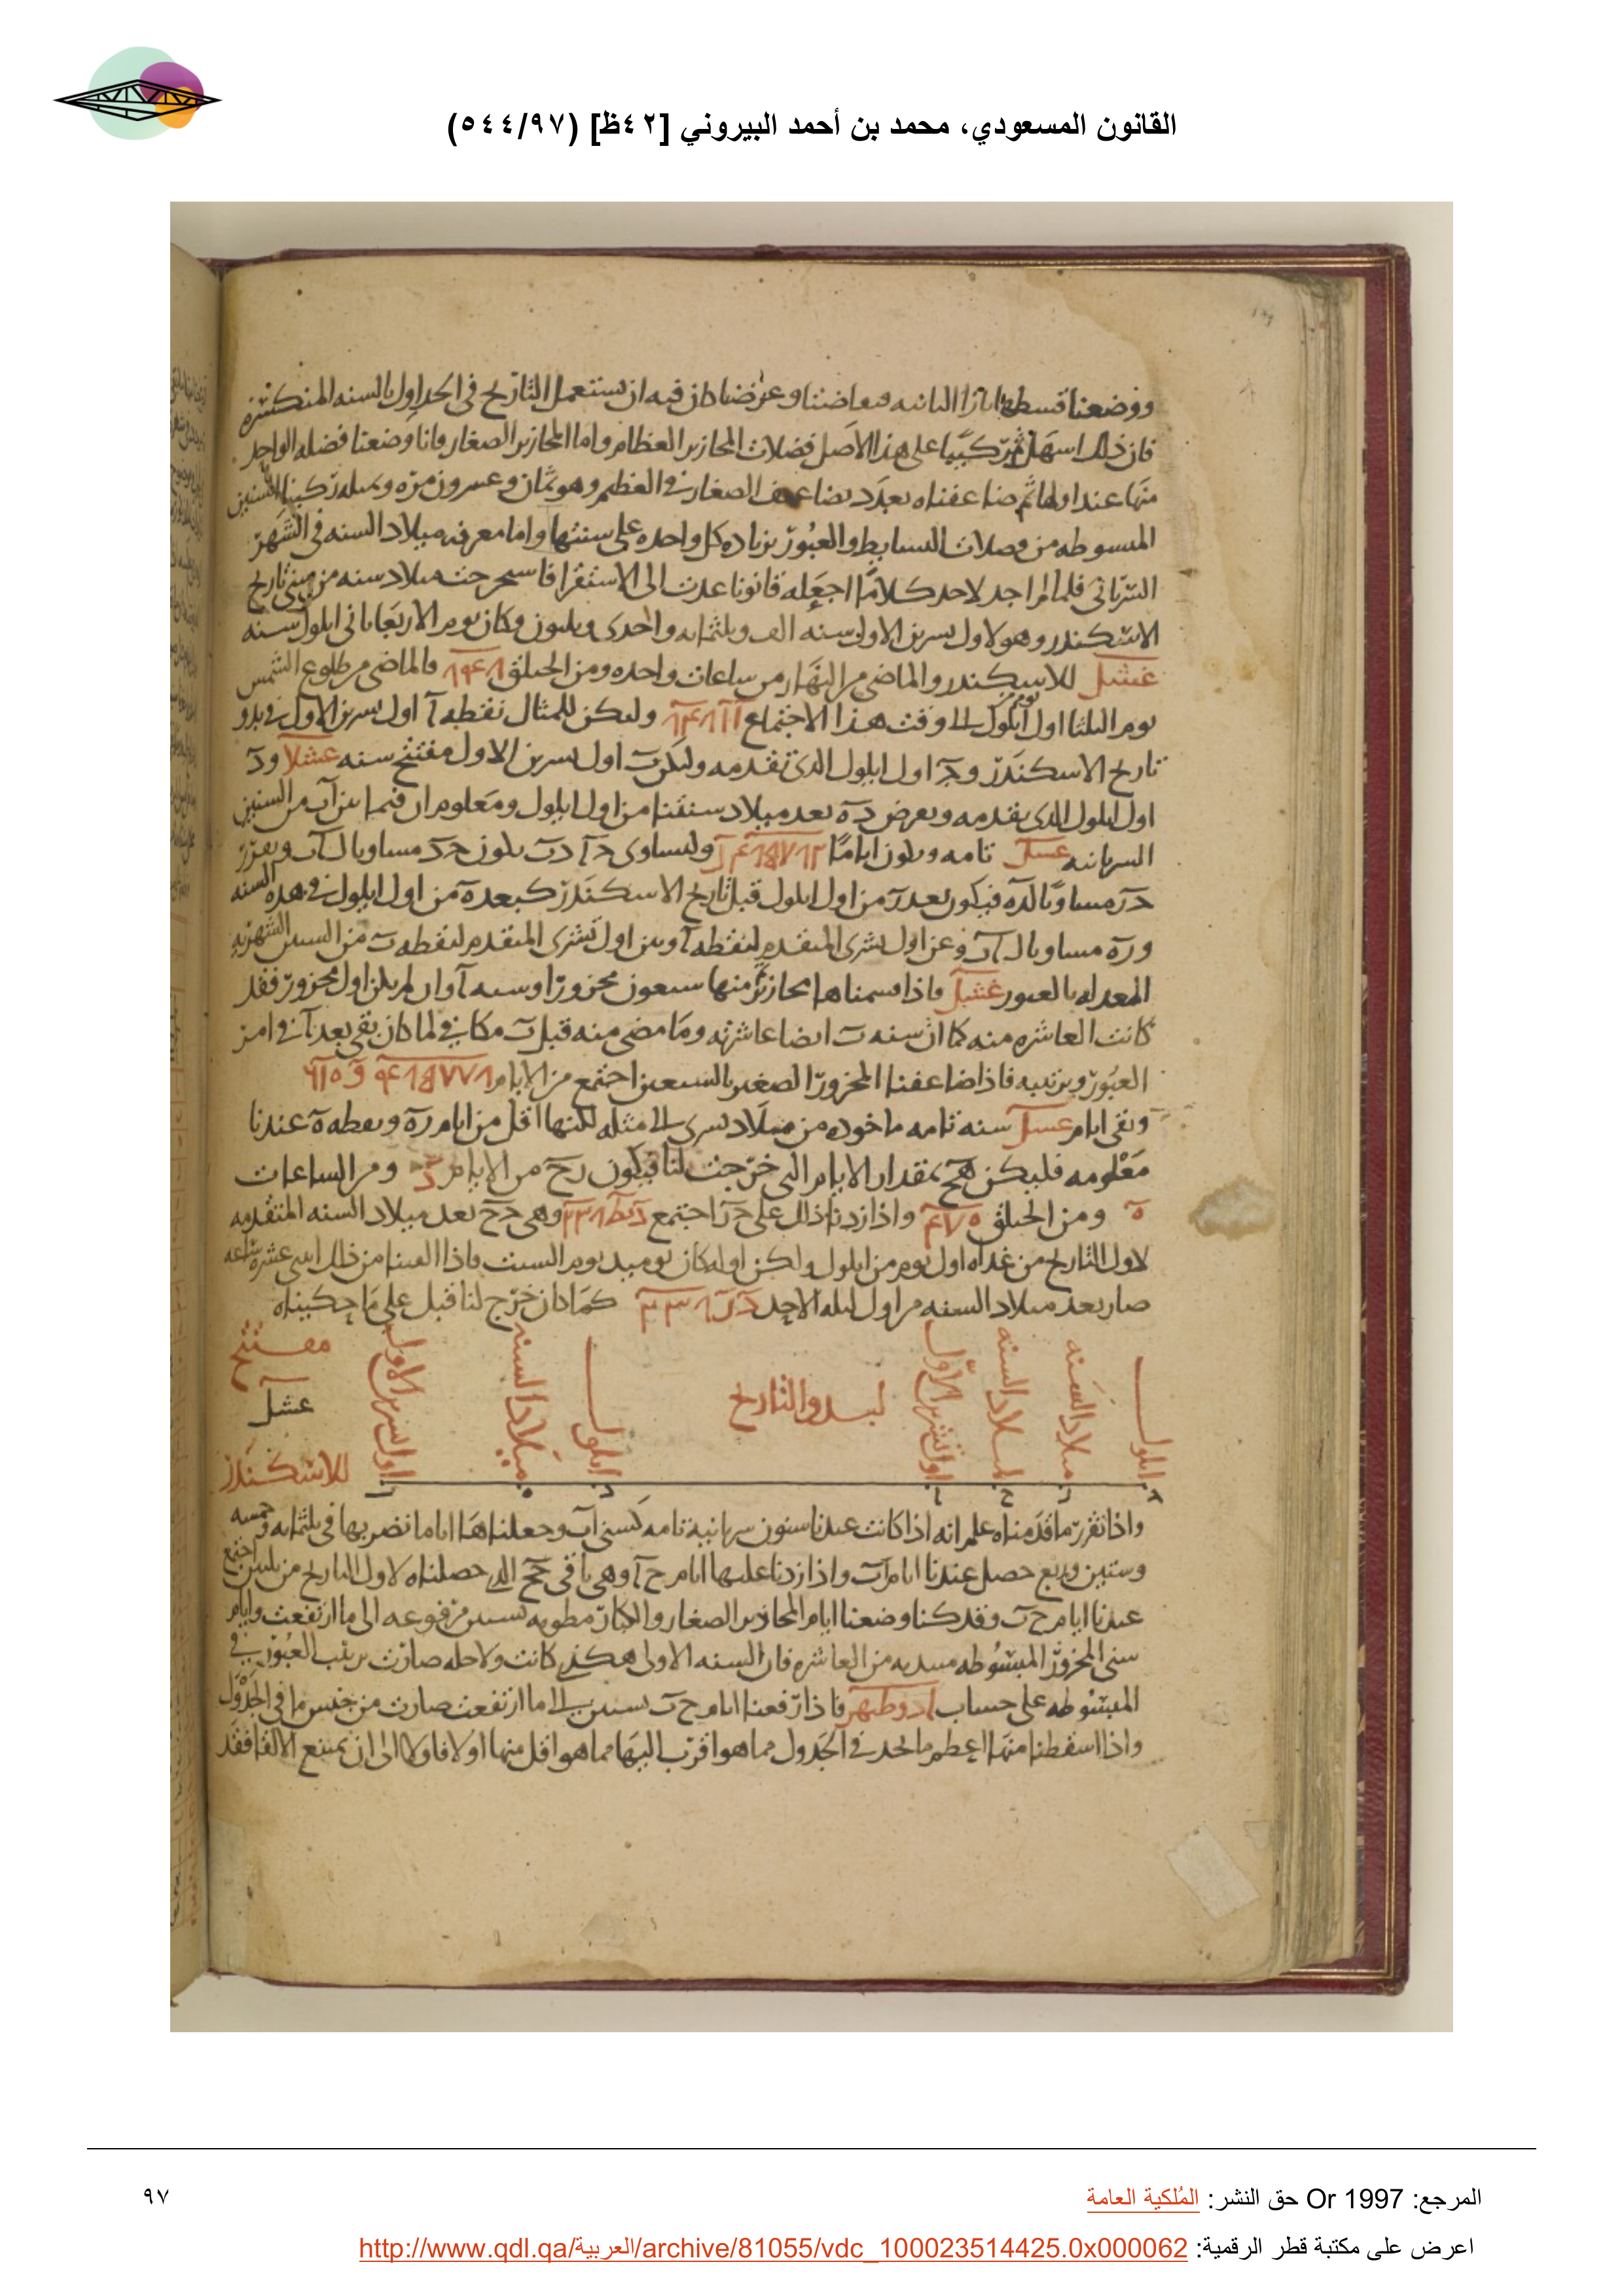 القانون المسعودي، محمد بن أحمد البيروني [٤٢ظ] (٥٤٤/٩٧)
ووضعنا قسطها بازا الثانيه وعرضنا كان فيه ان نستعمل التاريخ في الجداول بالسنه المنكسره
فان ذلك اسهل ثم ركبنا على هذا الاصل فضلات المحازير العظام واما المحازير الصغار فانا وضعنا فضله الواحد
منها عند اولها ثم ضاعفناه بعدد تضاعيف الصغار في العظم وهو ثمان وعسرون مره وبمثله ركبنا السنين
المبسوطه من فضلات البسايط والعبور بزياده كل واحده على سنتها واما معرفه ميلاد السنه في الشهر
السرياني فلما لم اجد لاحد كلاما اجعله قانونا عدت الى الاستقرا فاستخرجت ميلاد سنه من سني تاريخ
الاسكندر وهو لاول تسرين الاول سنه الف وثلثمايه واحدى وثلثون وكان يوم الاربعا ثاني ايلول سنه
غشل للاسكندر والماضي من النهار من ساعات واحده ومن الحلق والماضي من طلوع الشمس
يوم الثلثا اول يوم من ايلول الى وقت هذا الاجتماع وليكن للمثال نقطه آ اول تسرين الاول في بدو
تاريخ الاسكندر و ج اول ايلول الذي تقدمه وليكن ب اول تسرين الاول مفتتح سنه غشلا و د
اول ايلول الذي يقدمه ونفرض د ه بعد ميلاد سنتنا من اول ايلول ومعلوم ان فيما بين آ ب من السنين
السريانيه غشل تامه ويكون اياما وليساوي د آ د ب يكون ج د مساويا ل آ ب ونفرز
ج ر مساويا ل د ه فيكون بعد ر من اول ايلول قبل تاريخ الاسكندر كبعد ه من اول ايلول في هذه السنه
و ر ه مساويا ل آ ب وعن اول تشرى المتقدم لنقطه آ وبين اول تشرى المتقدم لنقطه ب من السنين الشهريه
المعدله بالعبور غشل فاذا قسمناها محازير كان منها سبعون محزورا وسنه آ وان لم يكن اول محزور فقد
كانت العاشره منه كما ان سنه ب ايضا عاشرته وما مضى منه قبل ب مكافي لما كان بقي بعد آ في امر
العبور وترتيبه فاذا ضاعفنا المحزور الصغير بالسبعين اجتمع من الايام
وبقي ايام غشل سنه تامه ماخوذه من ميلاد تشرى الى مثله لكنها اقل من ايام ر ه ونقطه ه عندنا
معلومه فليكن ه ح بمقدار الايام التي خرجت لنا فيكون ر ح من الايام ومن الساعات
ه ومن الحلق واذا زدنا ذلك على ج ر اجتمع وهي ج ح بعد ميلاد السنه المتقدمه
لاول التاريخ من غداه اول يوم من ايلول ولكن اوله كان يوميذ يوم السبت فاذا القينا من ذلك اثنى عشره ساعه
صار بعد ميلاد السنه من اول ليله الاحد كما كان خرج لنا قبل على ما حكيناه
ايلول
ميلاد السنه
لميلاد السنه
اول تشرين الاول
لبدو التاريخ
ايلول
ميلاد السنه
اول تسرين الاول
مفتتح
غشل
للاسكندر
واذا تقرر ما قدمناه علم انه اذا كانت عندنا سنون سريانية تامه كسني آ ب وجعلناها اياما نضربها في ثلثمايه وخمسه
وستين وربع حصل عندنا ايام آ ب واذا زدنا عليها ايام ح آ وهي باقي ج ح الذي حصلناه لاول التاريخ من ثلثين اجتمع
عندنا ايام ح ب وقد كنا وضعنا ايام المحازير الصغار والكبار مطويه بستين مرفوعه الى ما ارتفعت وايام
سني المحزور المبسوطه مبتديه من العاشره فان السنه الاولى هكذى كانت ولاجله صارت ترتيب العبور في
المبسوطه على حساب فاذا رفعنا ايام ح ب بستين الى ما ارتفعت صارت من جنس ما في الجدول
واذا اسقطنا منها اعظم ما نجد في الجدول مما هو اقرب اليها مما هو اقل منها اولا فاولا الى ان يمتنع الالقا فقد
المرجع: Or 1997 حق النشر: المُلكية العامة
٩٧
اعرض على مكتبة قطر الرقمية: http://www.qdl.qa/العربية/archive/81055/vdc_100023514425.0x000062